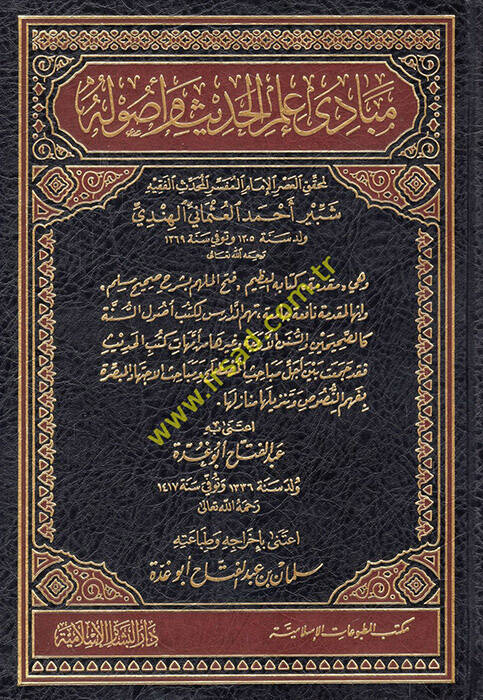 مبادئ علم الحديث وأصوله
لمحقق العصر الإمام المفسر المحدث الفقيه
شبير أحمد العثماني الهندي
ولد سنة ١٣٠٥ وتوفي سنة ١٣٦٩
رحمه الله تعالى
وهي «مقدمة» كتابه العظيم «فتح الملهم بشرح صحيح مسلم»
وإنها لمقدمة نافعة لدارس كتب أصول السنة
كالصحيحين والسنن وغيرها من أمهات كتب الحديث
فقد جمعت بين أجل مباحث المصطلح ومباحث الاجتهاد المبصرة
بفهم النصوص وتنزيلها منازلها.
اعتنى به
عبد الفتاح أبو غدة
ولد سنة ١٣٣٦ وتوفي سنة ١٤١٧
رحمه الله تعالى
اعتنى بإخراجه وطباعته
سلمان بن عبد الفتاح أبو غدة
مكتب المطبوعات الإسلامية
دار البشائر الإسلامية
www.irsad.com.tr